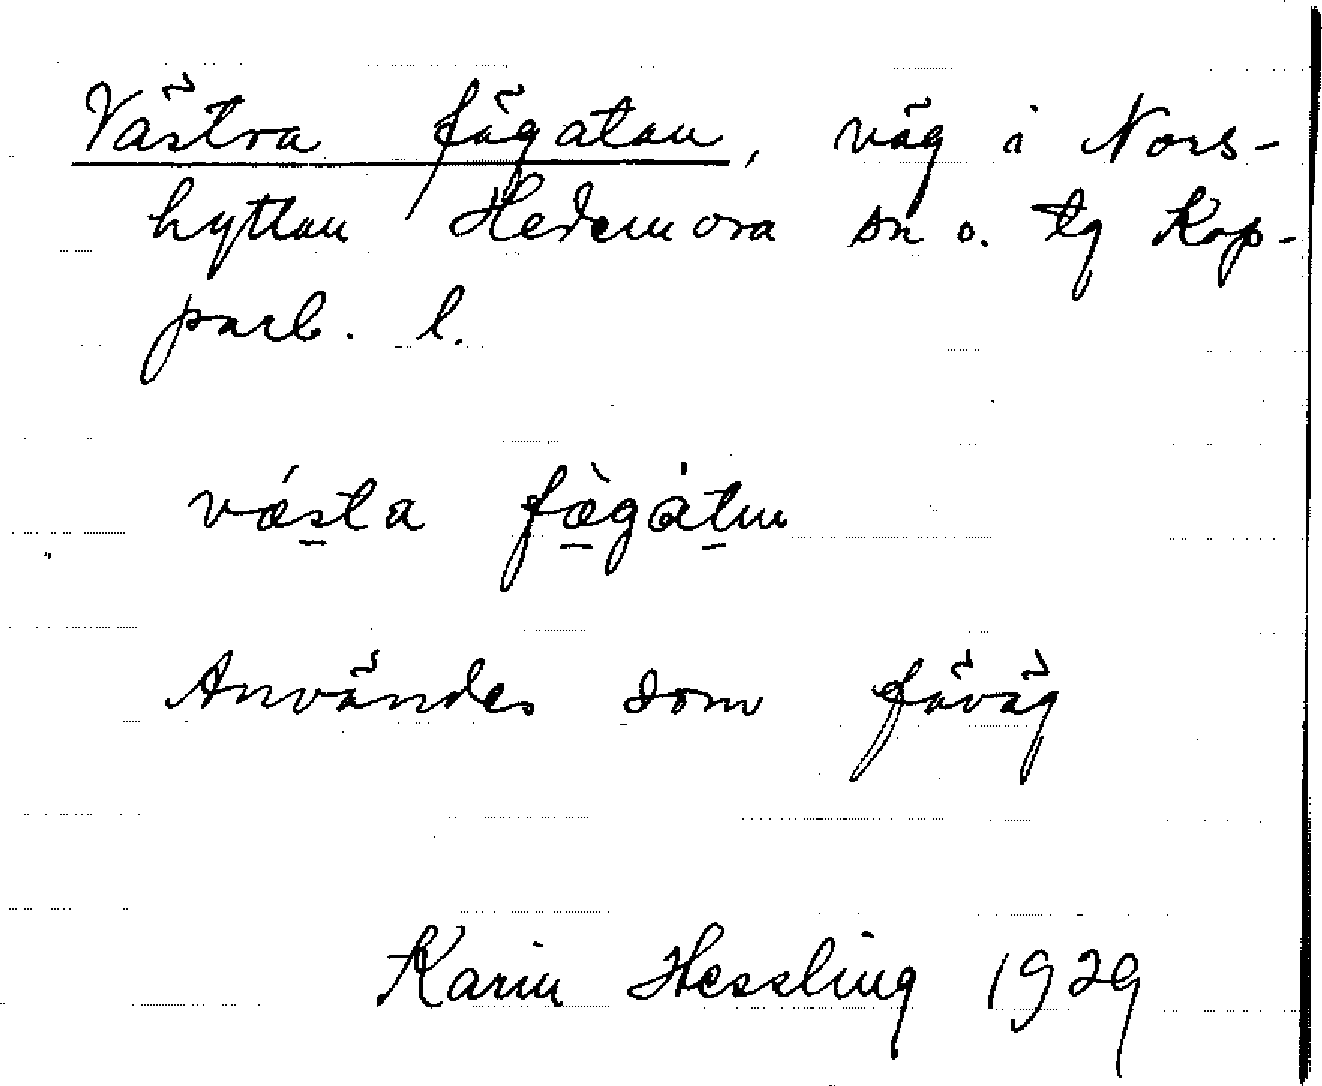 Västra fägatan, väg i Nors-
hyttan Hedemora sn o. tg Kop-
parb. l.
vǽsta fæ̀gátun
Användes som fäväg
Karin Hessling 1929